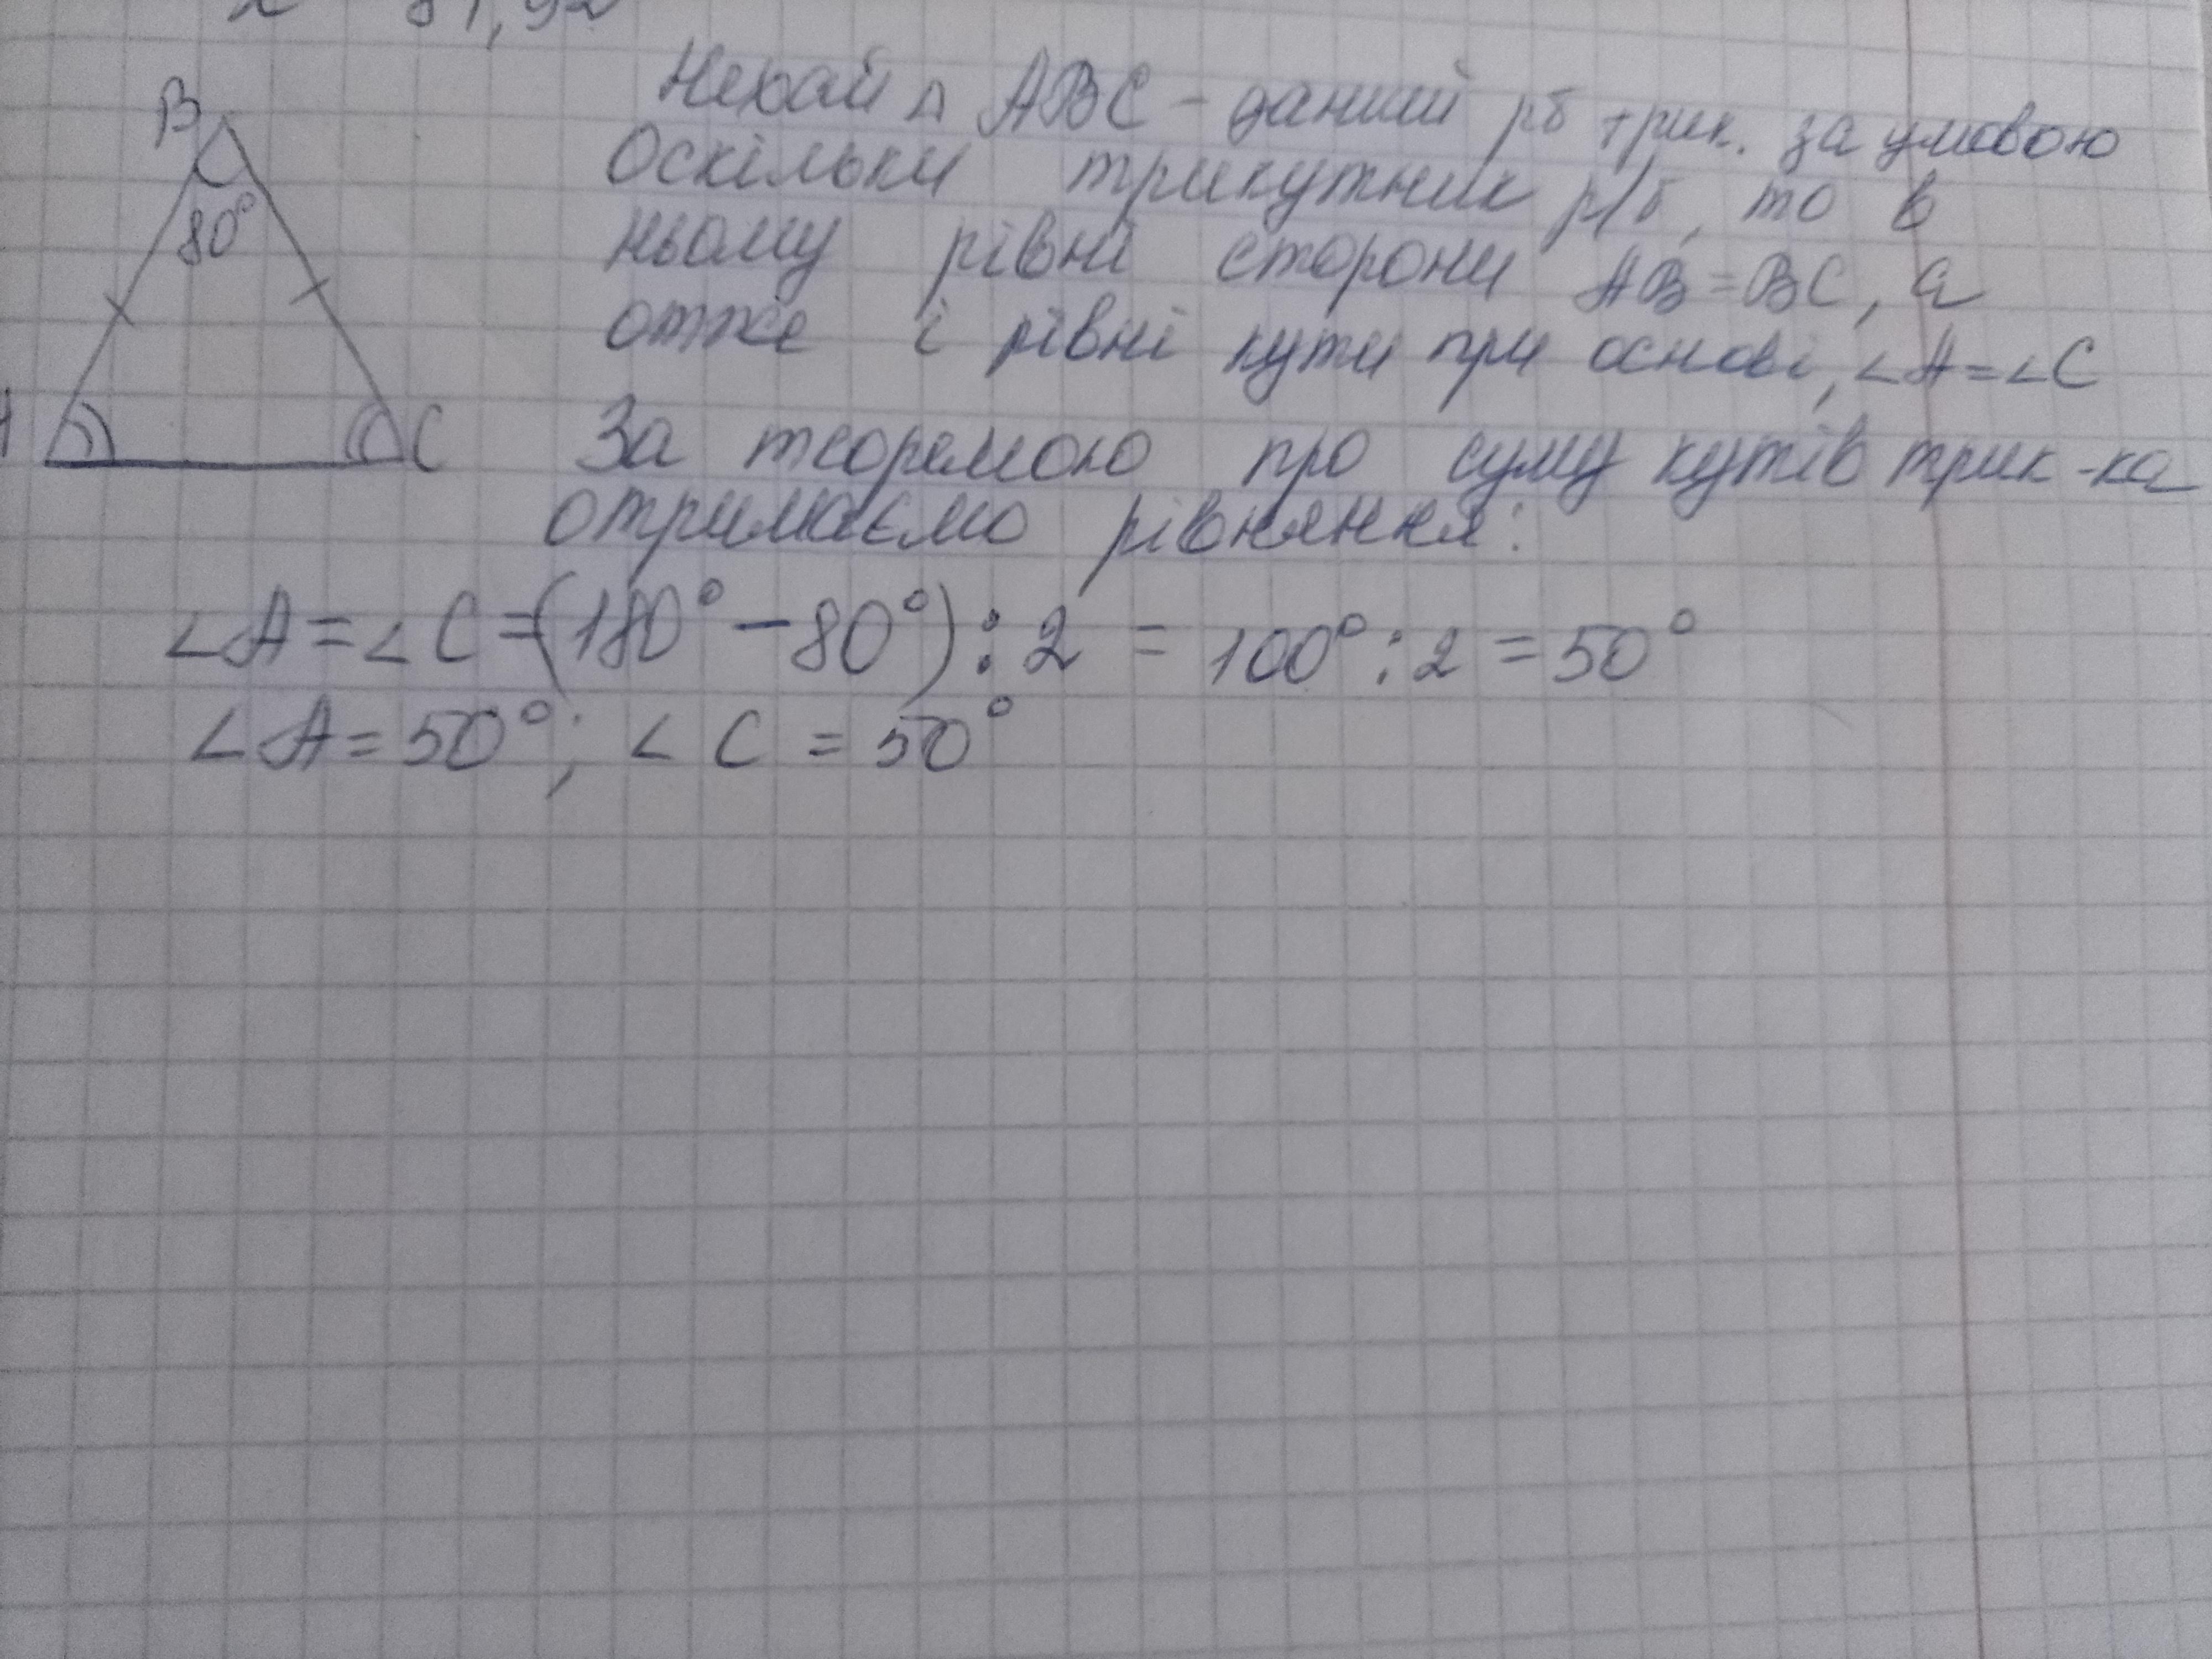 B
80°
C
Нехай △ ABC – даний рб трик. за умовою
Оскільки трикутник р/б, то в
ньому рівні сторони AB = BC, а
отже і рівні кути при основі, ∠A=∠C
За теоремою про суму кутів трик-ка
отримаємо рівняння:
∠A = ∠C = (180° – 80°) : 2 = 100° : 2 = 50°
∠A = 50°; ∠C = 50°